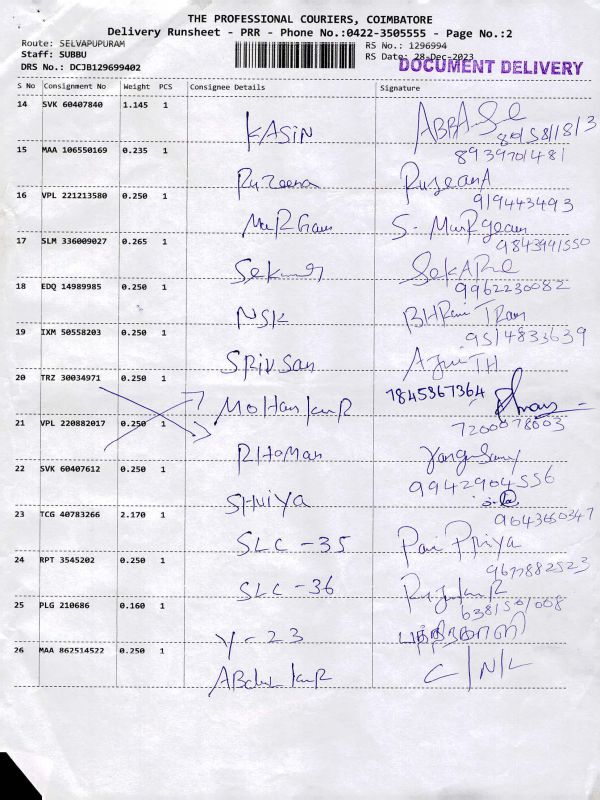 THE PROFESSIONAL COURIERS, COIMBATORE
Delivery Runsheet - PRR - Phone No.:0422-3505555 - Page No.:2
Route: SELVAPUPURAM RS No.: 1296994
Staff: SUBBU RS Date: 28-Dec-2023
DRS No.: DCJB129699402 DOCUMENT DELIVERY
S No Consignment No Weight PCS Consignee Details Signature
14 SVK 60407840 1.145 1
KASIN
15 MAA 106550169 0.235 1 8939701481
Ruzeena
16 VPL 221213580 0.250 1 919443493
MuRGan S.
17 SLM 336009027 0.265 1
SeKARe
18 EDQ 14989985 0.250 1 9962230082
NSK
19 IXM 50558203 0.250 1 9514833639
SRivSan
20 TRZ 30034971 0.250 1 7845367364
MoHanKuR
21 VPL 220882017 0.250 1 7200078003
22 SVK 60407612 0.250 1 9942904556
23 TCG 40783266 2.170 1
SLC -35 Priya
24 RPT 3545202 0.250 1 9677882523
SLC -36
25 PLG 210686 0.160 1
Y-23
26 MAA 862514522 0.250 1 C/N/L
ABdulKauR